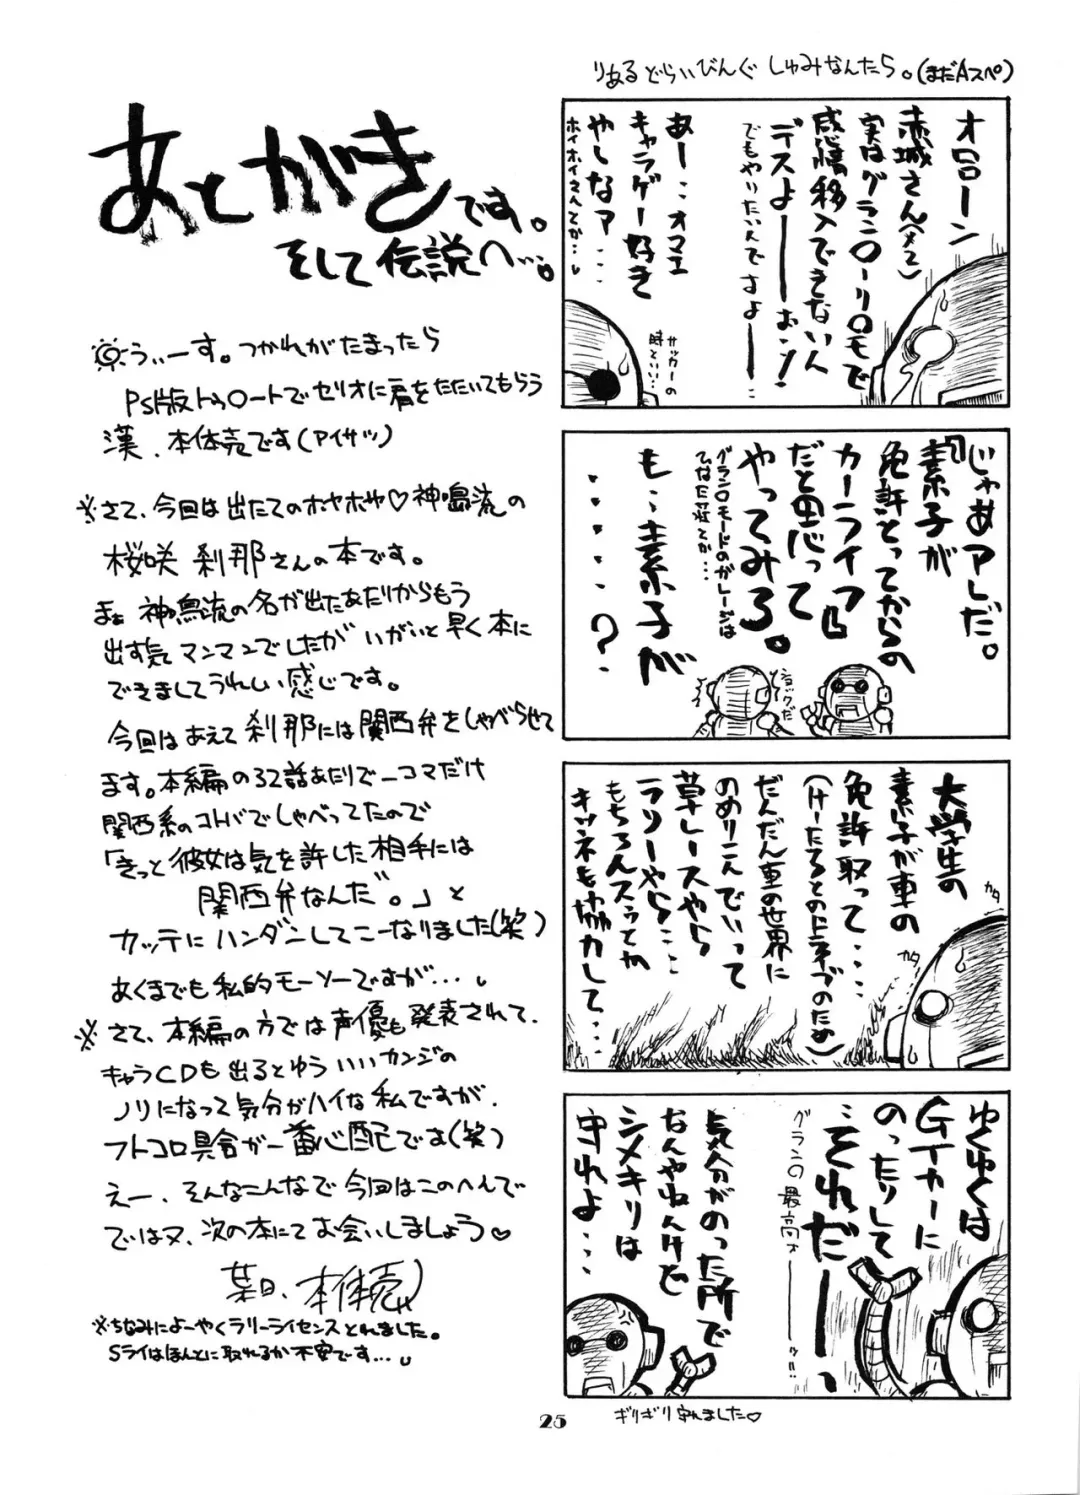 あとがきです。
そして伝説へ…。
うぃーす。つかれがたまったら
PS版トゥハートでセリオに肩をたたいてもらう
漢、本体売です(アイサツ)
※さて、今回は出たてのホヤホヤ♡神鳴流の
桜咲 刹那さんの本です。
まぁ神鳴流の名が出たあたりからもう
出す気マンマンでしたが いがいと早く本に
できましてうれしい感じです。
今回はあえて刹那には関西弁をしゃべらせて
ます。本編の32話あたりで一コマだけ
関西系のコトバでしゃべってたので
「きっと彼女は気を許した相手には
関西弁なんだ。」と
カッテにハンダンしてこーなりました(笑)
あくまでも私的モーソーですが…。
※さて、本編の方では声優も発表されて、
キャラCDも出るとゆういいカンジの
ノリになって気分がハイな私ですが、
フトコロ具合が一番心配です(笑)
えー、そんなこんなで今回はこのへんで
ではヌ、次の本にてお会いしましょう♡
某日、本体売
※ちなみによーやくラリーライセンスとれました。
Sライはほんとに取れるか不安です…。
りあるどらいびんぐ しゅみなんたら。(まだAスペ)
オローン
赤城さん(メコ)
実はグラン〇ーリ〇モで
感情移入できないん
デスよーーーおー!
でもやりたいんですよーーー
あー…オマエ
キャラゲー好き
やしなァ…
ホイホイさんとか…
サッカーの
時といい…
じゃあアレだ。
『素子が
免許とってからの
カーライフ』
だと思って
やってみろ。
グラン〇モードのガレージは
ひなた荘とか…
も…素子が
……?
ショックだ
大学生の
素子が車の
免許取って…
(けーたろとのドライブのため)
だんだん車の世界に
のめりこんでいって
草レースやら
ラリーやら…
もちろんスゥとか
キツネも協力して…
カタ
カタ
ゆくゆくは
GTカーに
のったりして
…それだーーっ
グラン〇最高ォーーー!!
気分がのった所で
なんやねんけど
シメキリは
守れよ…
ギリギリ守れました♡
25